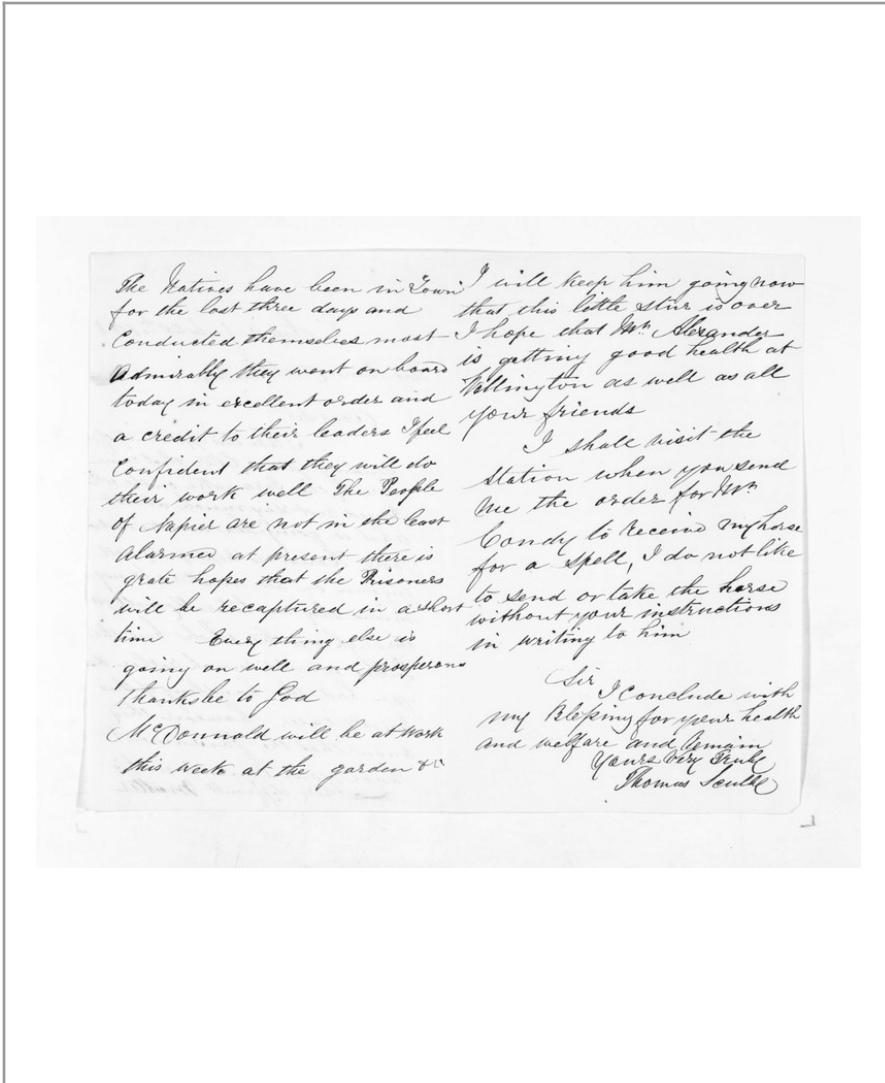 The Natives have been in Town
for the last three days and
Conducted themselves most
Admirably they went on board
today in excellent order and
a credit to their leaders I feel
Confident that they will do
their work well The People
of Napier are not in the least
alarmed at present there is
grate hopes that the Prisoners
will be recaptured in a short
time Every thing else is
going on well and prosperous
thanks be to God
McDonnald will be at work
this week at the garden &c
I will keep him going now
that this little stir is over
I hope that Mr. Alexander
is getting good health at
Wellington as well as all
your friends
I shall visit the
Station when you send
me the order for Mr.
Condy to receive my horse
for a spell, I do not like
to send or take the horse
without your instructions
in writing to him
Sir
I Conclude with
my Blessing for your health
and welfare and Remain
Yours Very Truly
Thomas